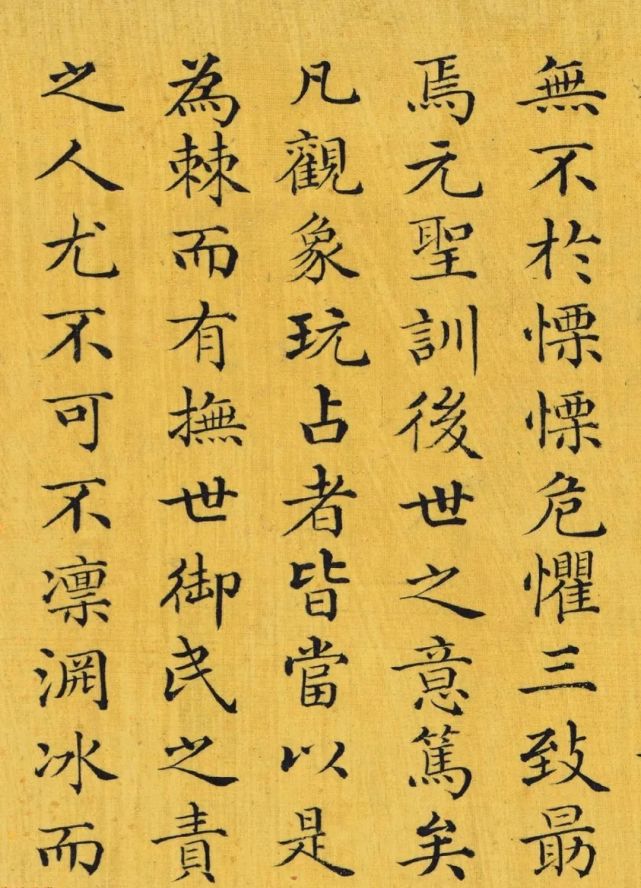 無不於慄慄危懼三致勗
焉元聖訓後世之意篤矣
凡觀象玩占者皆當以是
為棘而有撫世御民之責
之人尤不可不凛淵冰而